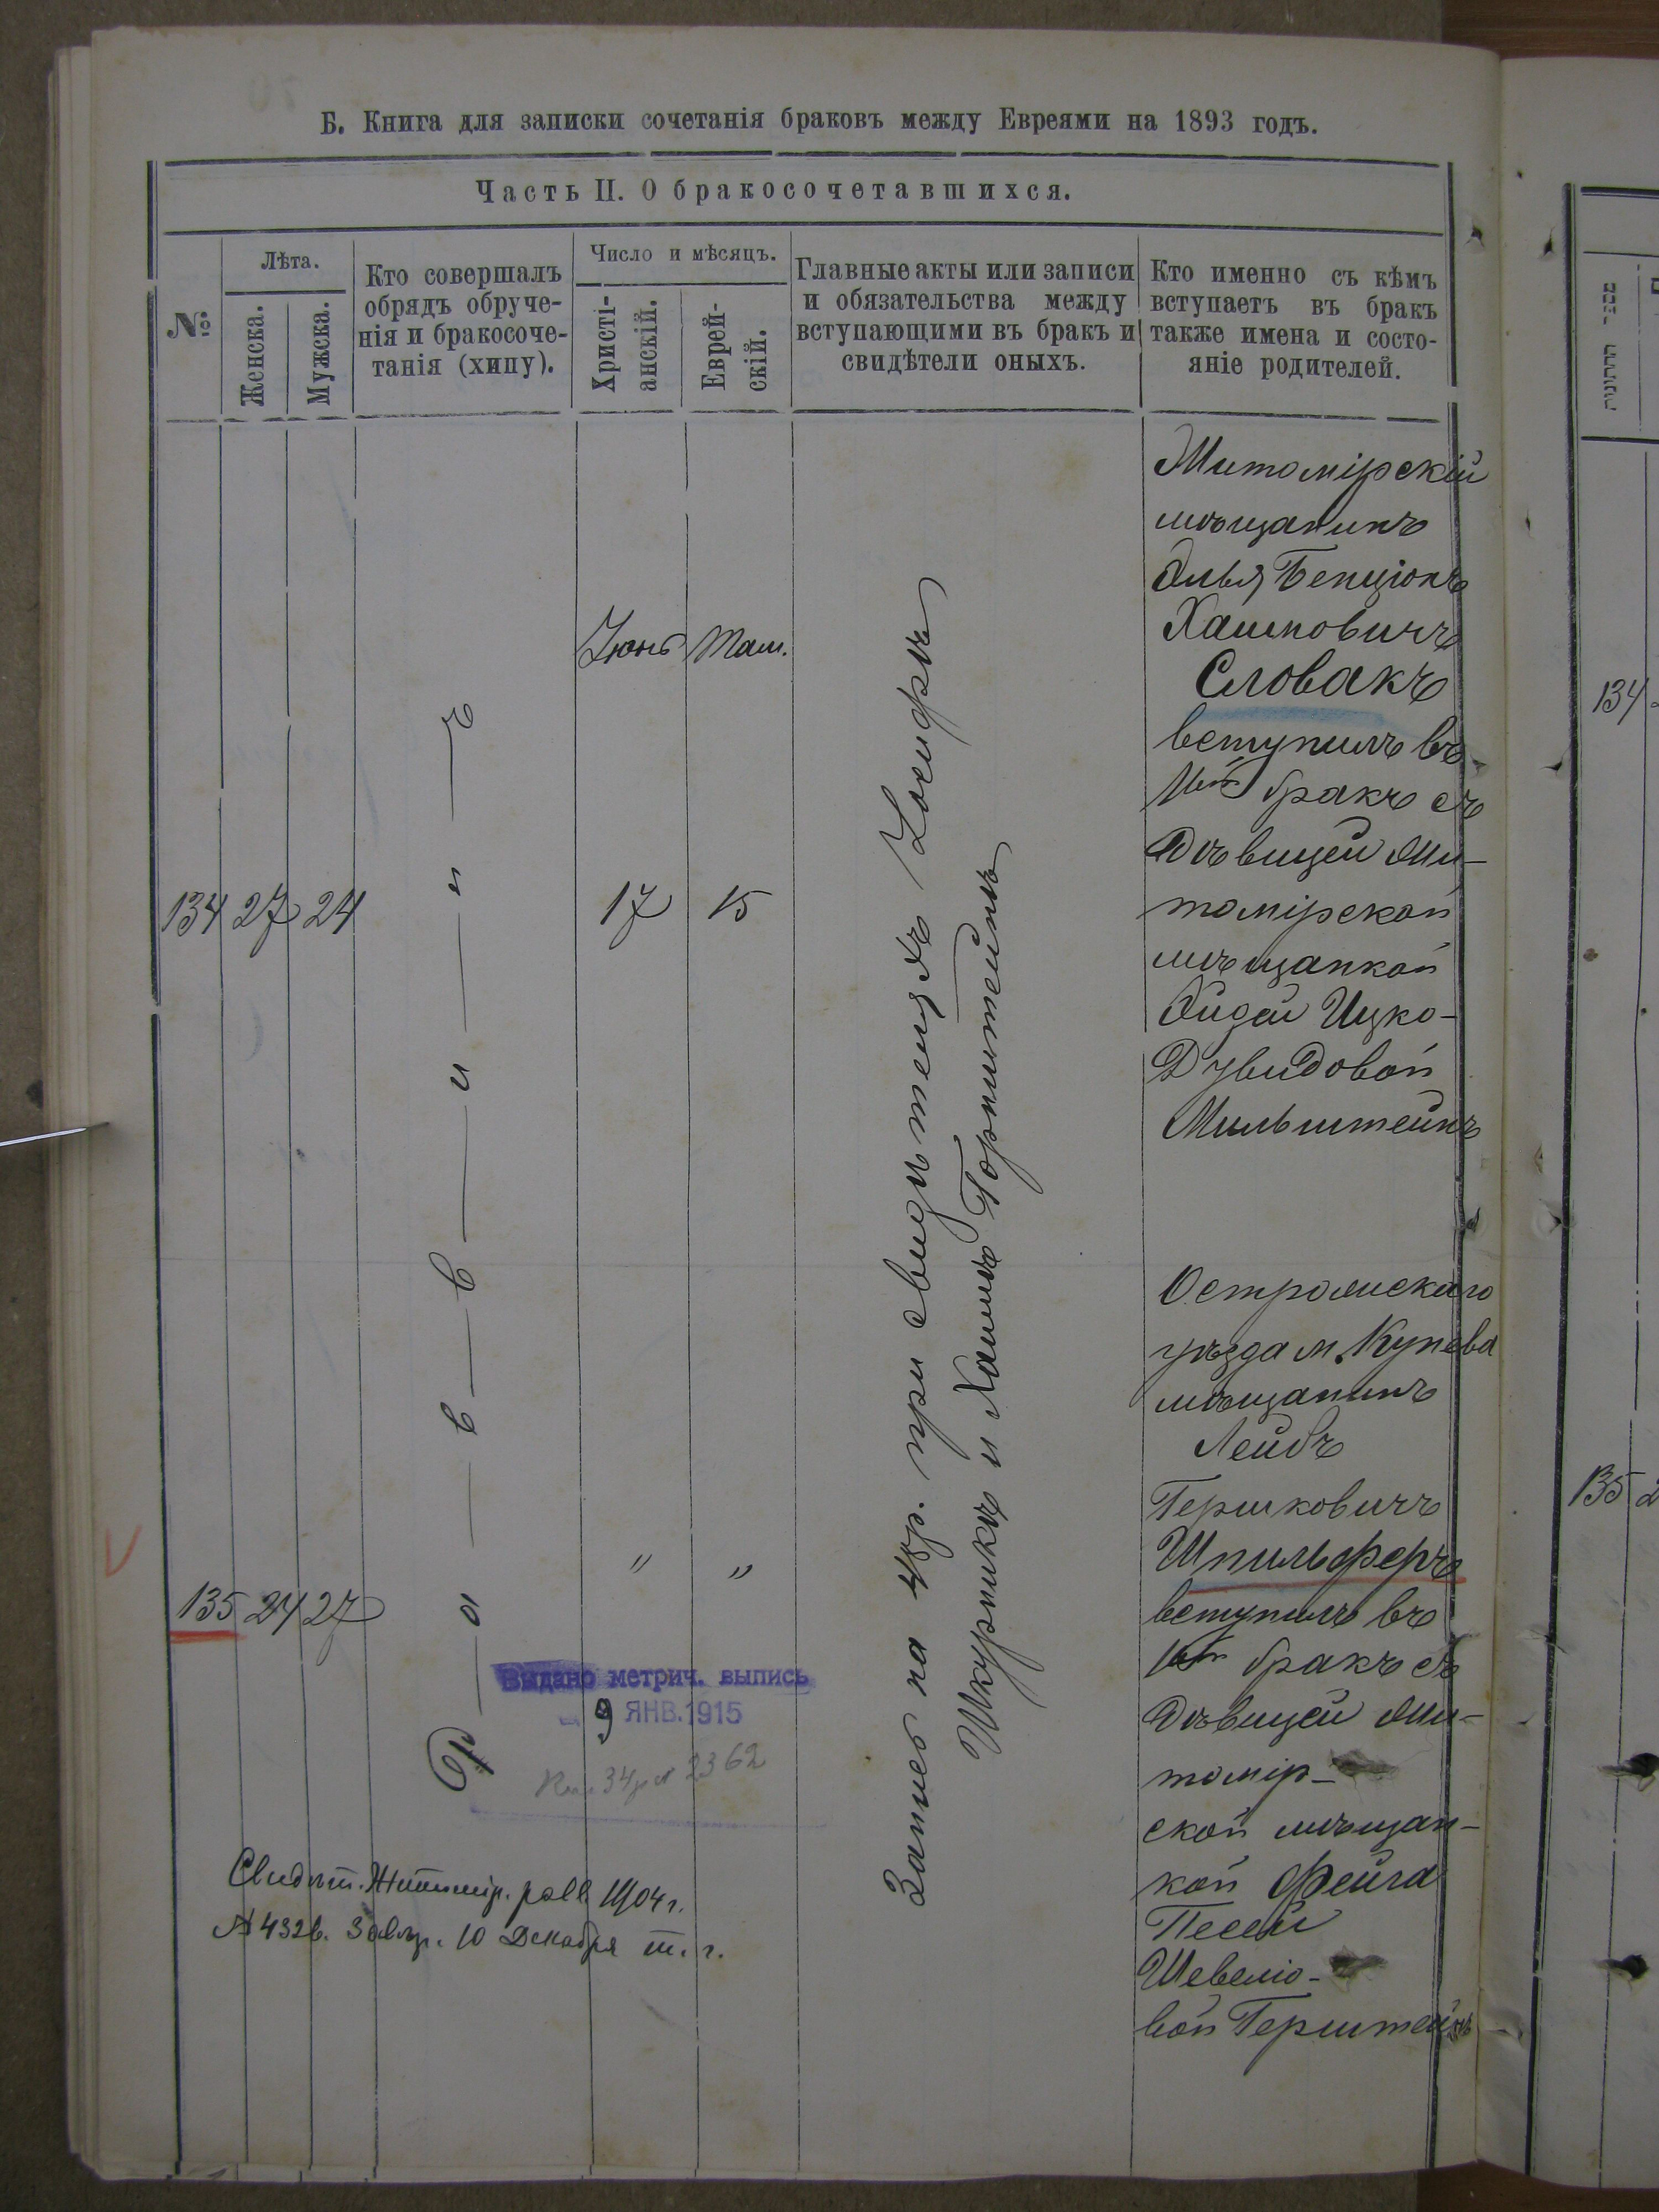 Б. Книга для записки сочетанія браковъ между Евреями на 1893 годъ.
Часть II. О бракосочетавшихся.
№
Лѣта.
Женска.
Мужска.
Кто совершалъ
обрядъ обруче-
нія и бракосоче-
танія (хипу).
Число и мѣсяцъ.
Христі-
анскій.
Еврей-
скій.
Главные акты или записи
и обязательства между
вступающими въ бракъ и
свидѣтели оныхъ.
Кто именно съ кѣмъ
вступаетъ въ бракъ
также имена и состо-
яніе родителей.
134
27
24
Раввинъ
Іюнь
17
Там.
15
Запись на 48р. при свидѣтеляхъ Іосифѣ
Шкурникѣ и Хаимѣ Горнштейнѣ
Житомірскій
мѣщанинъ
Элья Бенціонъ
Хаимовичъ
Словакъ
вступилъ въ
1ый бракъ съ
дѣвицей Жи-
томірской
мѣщанкой
Ицко-
Дувидовой
Мильштейнъ
135
24
27
"
"
Острожскаго
уѣзда м. Кунева
мѣщанинъ
Лейбъ
Гершковичъ
Шпильферъ
вступилъ въ
1ый бракъ съ
дѣвицей Жи-
томір-
ской мѣщан-
кой Фейга
Песей
Шевеліо-
вой Герштейнъ
Выдано метрич. выпись
9 ЯНВ. 1915
34р № 2362
Свидѣт. Житомір. равв 1904 г.
№ 4326. 10 Декабря т. г.
134
135